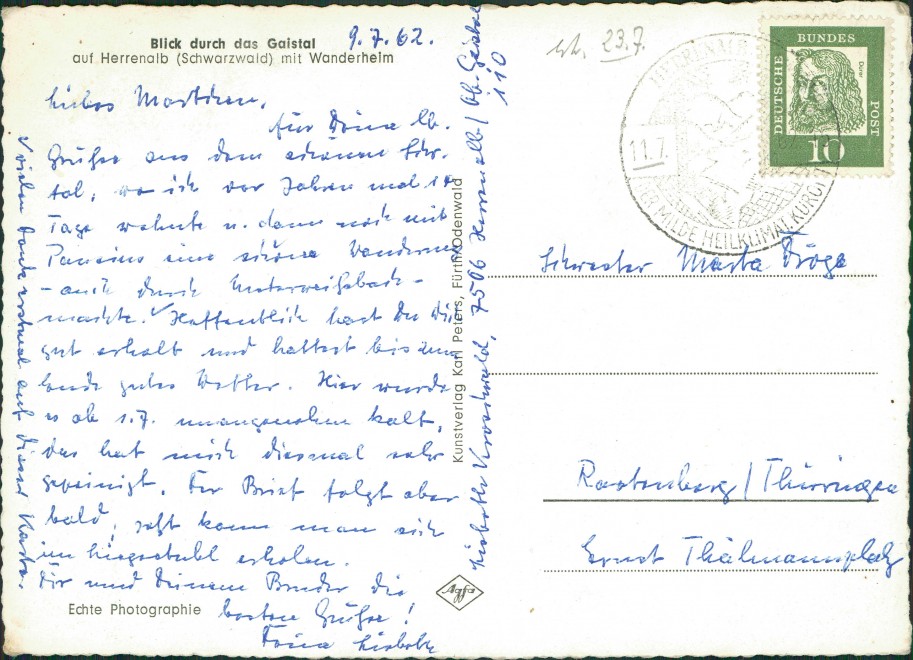 Blick durch das Gaistal
auf Herrenalb (Schwarzwald) mit Wanderheim
9.7.62.
Liebes Martchen,
für Deine lb.
Grüße aus dem schönen
tal, wo ich vor Jahren mal 14
Tage wohnte u. dann noch mit
eine schöne Wanderung
- auch durch Unterweißbach -
machte. Hoffentlich hast Du Dich
gut erholt und hattest bis zum
Ende gutes Wetter. Hier wurde
es ab 1.7. unangenehm kalt,
das hat mich diesmal sehr
gepeinigt. Der Brief folgt aber
bald, jetzt kann man sich
im Liegestuhl erholen.
Dir und Deinem Bruder die
besten Grüße!
Deine Liesbeth
vielen Dank erstmal auf dieser Karte.
Echte Photographie
Kunstverlag Karl Peters, Fürth/Odenwald
Liesbeth 7506 Herrenalb/Ob. Gaistal
110
Agfa
23.7.
HERRENALB
11.7.
DER MILDE HEILKLIMAT. KURORT
DEUTSCHE
BUNDES
POST
Dürer
10
Schwester Marta Dröge
Rastenberg/Thüringen
Ernst Thälmannplatz